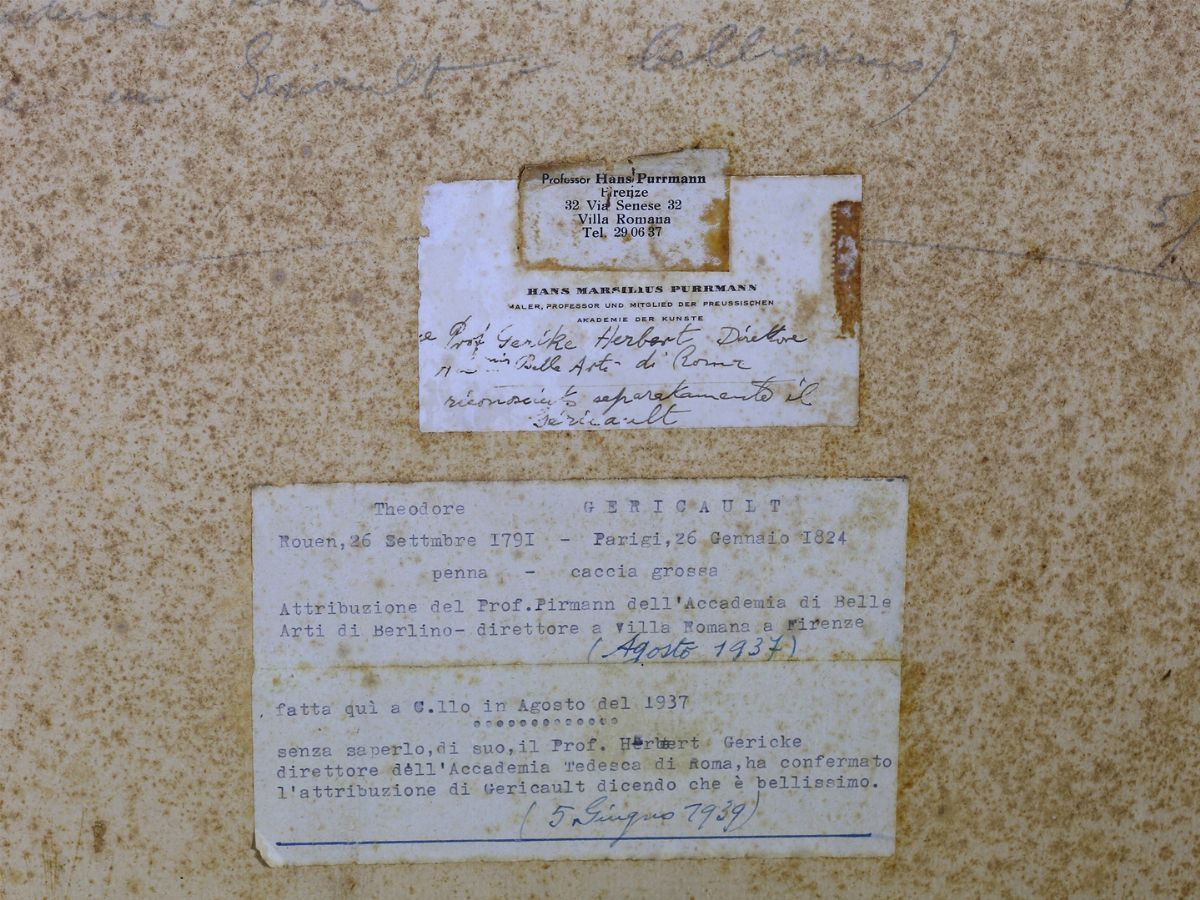 Gericault - bellissimo)
Professor Hans Purrmann
Firenze
32 Via Senese 32
Villa Romana
Tel. 29 06 37
HANS MARSILIUS PURRMANN
MALER, PROFESSOR UND MITGLIED DER PREUSSISCHEN
AKADEMIE DER KUNSTE
Prof Gerike Herbert Direttore
Belle Arti di Roma
riconosciuto separatamente il
Géricault
Theodore GERICAULT
Rouen,26 Settmbre 1791 - Parigi,26 Gennaio 1824
penna - caccia grossa
Attribuzione del Prof.Pirmann dell'Accademia di Belle
Arti di Berlino- direttore a Villa Romana a Firenze
(Agosto 1937)
fatta quì a C.llo in Agosto del 1937
senza saperlo,di suo,il Prof. Herbert Gericke
direttore dell'Accademia Tedesca di Roma,ha confermato
l'attribuzione di Gericault dicendo che è bellissimo.
(5 Giugno 1939)